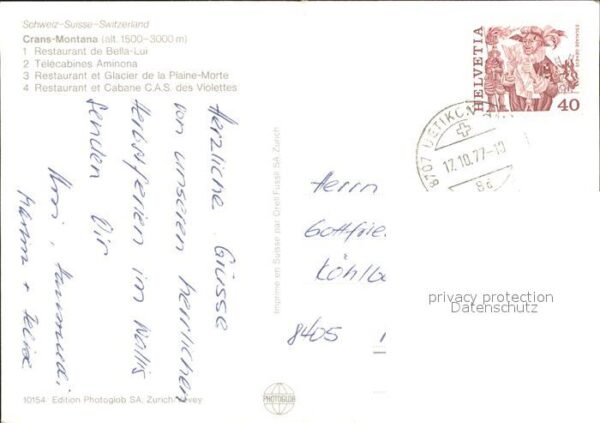 Schweiz-Suisse-Switzerland
Crans-Montana (alt. 1500-3000 m)
1 Restaurant de Bella-Lui
2 Télécabines Aminona
3 Restaurant et Glacier de la Plaine-Morte
4 Restaurant et Cabane C.A.S. des Violettes
Herzliche Grüsse
von unseren herrlichen
Herbstferien im Wallis
senden Dir
Martin + Felix
10154 Edition Photoglob SA, Zürich/Vevey
Imprimé en Suisse par Orell Füssli SA Zürich
PHOTOGLOB
HELVETIA
ESCALADE GENÈVE
40
8707 UETIKON
17.10.77-10
Herrn
Gottfrie
Köhlb
8405
privacy protection
Datenschutz